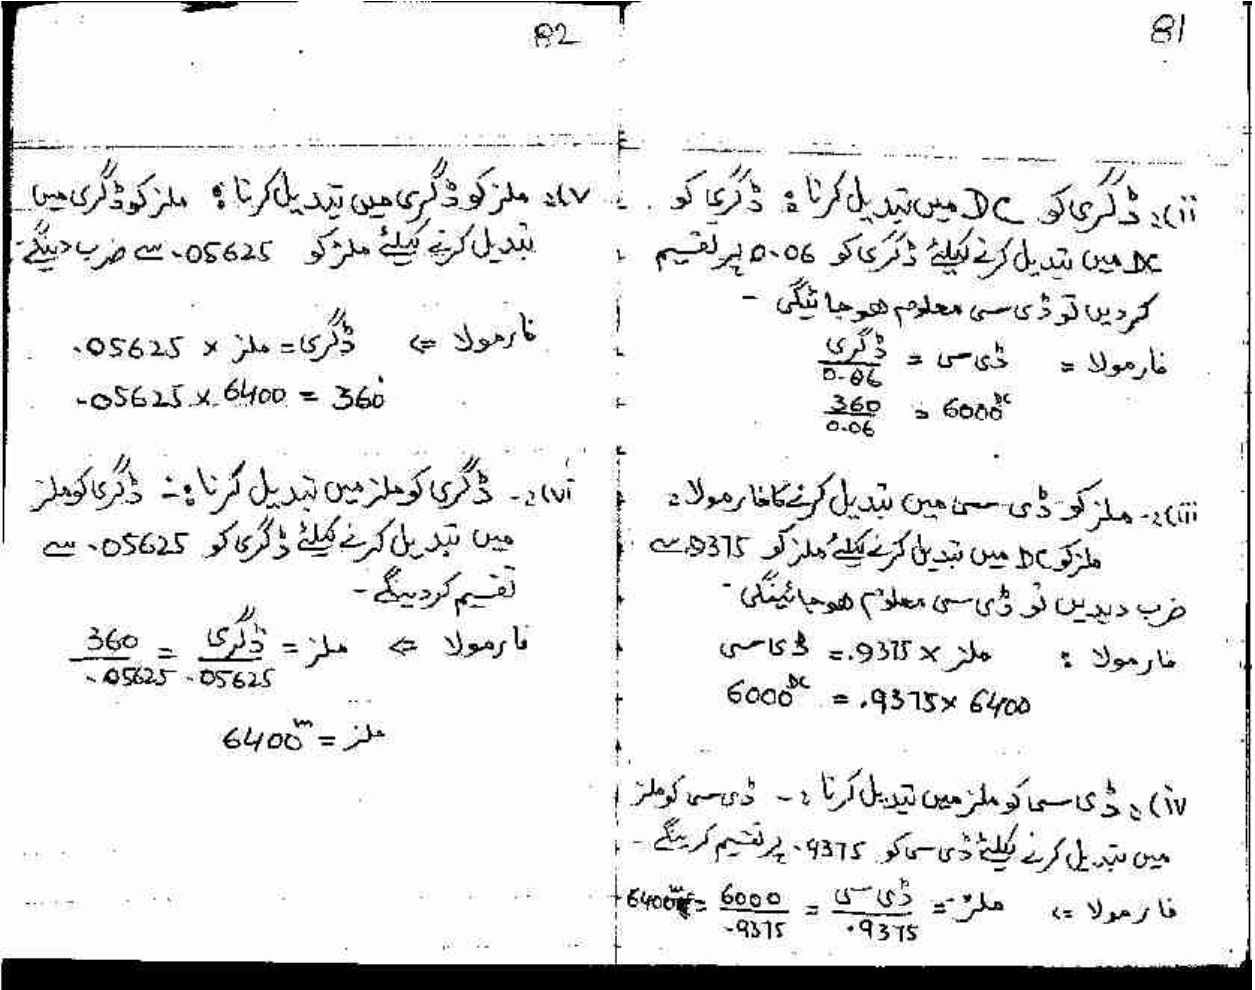 81
ii): ڈگری کو DC میں تبدیل کرنا: ڈگری کو
DC میں تبدیل کرنے کیلئے ڈگری کو 0.06 پر تقسیم
کردیں تو ڈی سی معلوم ھوجائیگی -
فارمولا = ڈی سی = ڈگری / 0.06
360 / 0.06 = 6000 DC
iii):- ملز کو ڈی سی میں تبدیل کرنے کا فارمولا:
ملز کو DC میں تبدیل کرنے کیلئے ملز کو .9375 سے
ضرب دیدیں تو ڈی سی معلوم ھوجائینگی -
فارمولا : ملز × .9375 = ڈی سی
6000 DC = .9375 × 6400
iv): ڈی سی کو ملز میں تبدیل کرنا :- ڈی سی کو ملز
میں تبدیل کرنے کیلئے ڈی سی کو .9375 پر تقسیم کرینگے -
فارمولا => ملز = ڈی سی / .9375 = 6000 / .9375 = 6400 m
82
v): ملز کو ڈگری میں تبدیل کرنا: ملز کو ڈگری میں
تبدیل کرنے کیلئے ملز کو .05625 سے ضرب دینگے -
فارمولا => ڈگری = ملز × .05625
.05625 × 6400 = 360°
vi):- ڈگری کو ملز میں تبدیل کرنا:- ڈگری کو ملز
میں تبدیل کرنے کیلئے ڈگری کو .05625 سے
تقسیم کردینگے -
فارمولا => ملز = ڈگری / .05625 = 360 / .05625
ملز = 6400 m